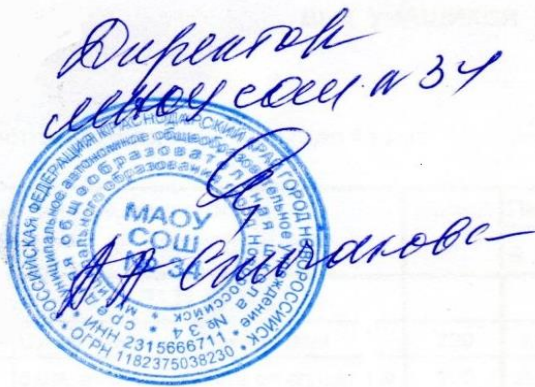 Директор
МАОУ СОШ № 34
РОССИЙСКАЯ ФЕДЕРАЦИЯ КРАСНОДАРСКИЙ КРАЙ ГОРОД НОВОРОССИЙСК
муниципальное автономное общеобразовательное учреждение
средняя общеобразовательная школа № 34
муниципального образования город Новороссийск
МАОУ
СОШ
№ 34
ИНН 2315666711
ОГРН 1182375038230